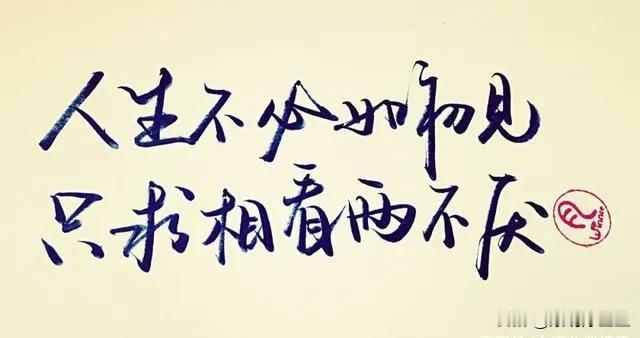 人生不必如初见
只求相看两不厌